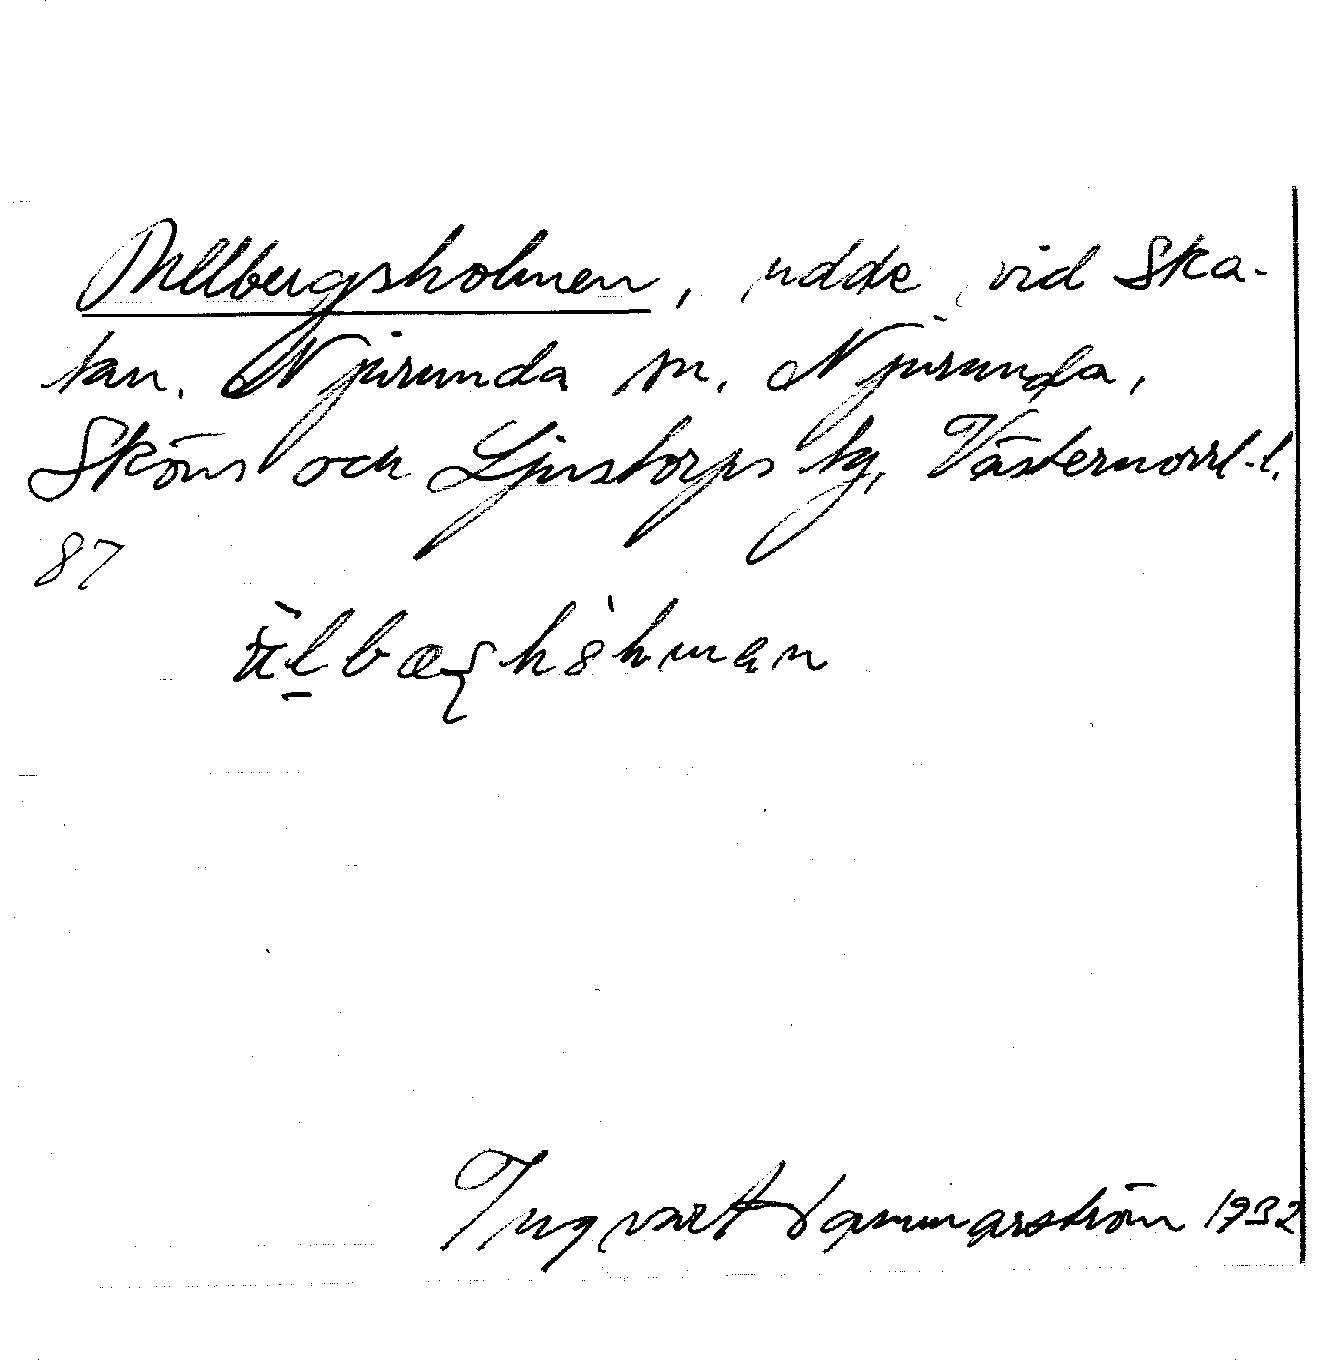 Ullbergsholmen, udde vid Ska-
tan. Njurunda sn. Njurunda,
Sköns och Ljustorps tg, Västernorrl. l.
87
Ingvart Hammarström 1932